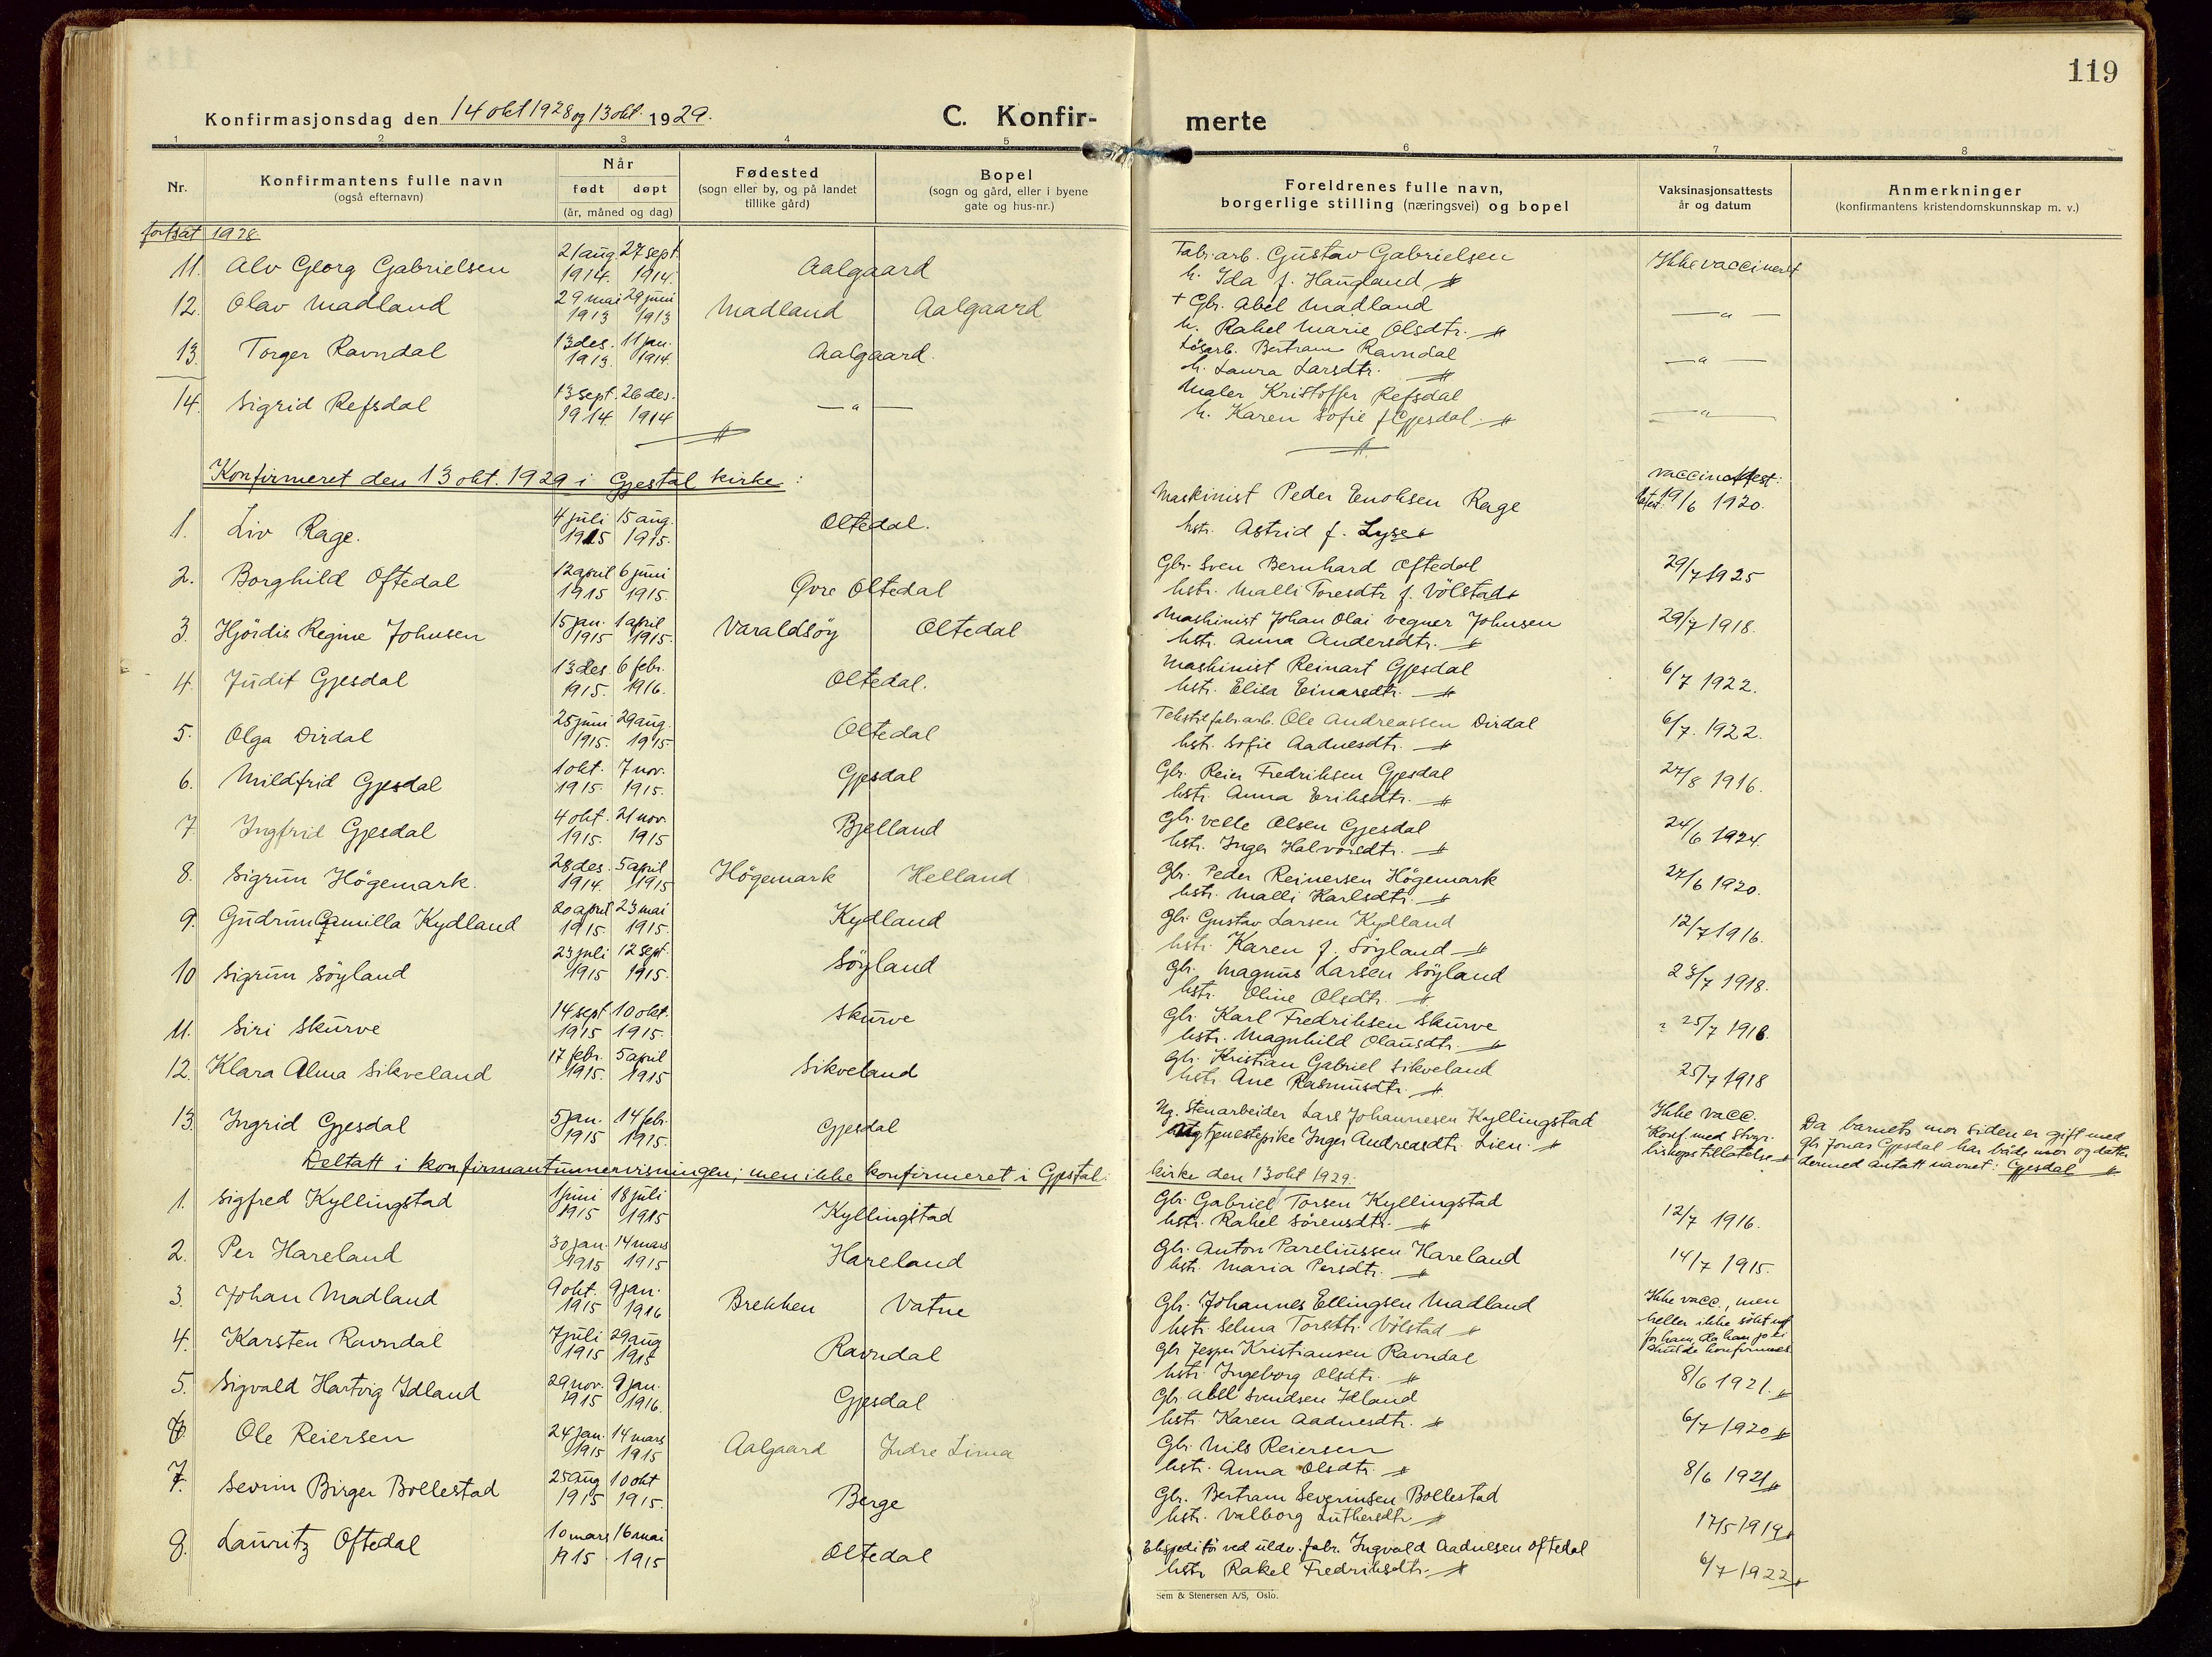 119
Konfirmasjonsdag den 14 okt 1928 og 13 okt. 1929.
C. Konfir- merte
1 2 3 4 5 6 7 8
Nr.
Konfirmantens fulle navn
(også efternavn)
Når
født døpt
(år, måned og dag)
Fødested
(sogn eller by, og på landet
tillike gård)
Bopel
(sogn og gård, eller i byene
gate og hus-nr.)
Foreldrenes fulle navn,
borgerlige stilling (næringsvei) og bopel
Vaksinasjonsattests
år og datum
Anmerkninger
(konfirmantens kristendomskunnskap m. v.)
fortsat 1928
11. Alv Georg Gabrielsen 21 aug. 1914. 27 sept. 1914. Aalgaard Fabr.arb. Gustav Gabrielsen Ikke vaccineret
h. Ida f. Haugland
12. Olav Madland 29 mai 1913 29 juni 1913 Madland Aalgaard + Gbr. Abel Madland — " —
h. Rakel Marie Olsdtr.
13. Torger Ravndal 13 des. 1913. 11 jan. 1914. Aalgaard. Løsarb. Bertram Ravndal — " —
h. Laura Larsdtr.
14. Sigrid Refsdal 13 sept. 1914. 26 des. 1914 — " — Maler Kristoffer Refsdal — " —
h. Karen Sofie f Gjesdal
Konfirmeret den 13 okt. 1929 i Gjestal kirke: vaccinattest:
1. Liv Rage. 4 juli 1915 15 aug. 1915. Oltedal. Maskinist Peder Enoksen Rage 19/6 1920.
hstr. Astrid f. Lyse
2. Borghild Oftedal 12 april 1915 6 juni 1915. Øvre Oltedal Gbr. Sven Bernhard Oftedal 29/7 1925
hstr. Malli Toresdtr f. Völstad
3. Hjördis Regine Johnsen 15 jan. 1915 1 april 1915. Varaldsöy Oltedal Maskinist Johan Olai Vegner Johnsen 29/7 1918.
hstr. Anna Andersdtr.
4. Judit Gjesdal 13 des. 1915. 6 febr. 1916. Oltedal. Maskinist Reinart Gjesdal 6/7 1922.
hstr. Elisa Einarsdtr.
5. Olga Dirdal 25 juni 1915. 29 aug. 1915 Oltedal Tekstilfabr.arb. Ole Andreassen Dirdal 6/7. 1922.
hstr. Sofie Aadnesdtr.
6. Mildfrid Gjesdal 1 okt. 1915. 7 nov. 1915. Gjesdal Gbr. Reier Fredriksen Gjesdal 27/8 1916.
hstr. Anna Eriksdtr.
7. Ingfrid Gjesdal 4 okt. 1915. 21 nov. 1915 Bjelland Gbr. Velle Olsen Gjesdal 24/6 1924.
hstr. Inger Halvorsdtr.
8. Sigrun Högemark. 28 des. 1914. 5 april 1915 Högemark Helland Gbr. Peder Reinersen Högemark 27/6 1920.
hstr. Malli Karlsdtr.
9. Gudrun Camilla Kydland 20 april 1915. 23 mai 1915. Kydland Gbr. Gustav Larsen Kydland 12/7 1916.
hstr. Karen f. Söyland
10 Sigrun Söyland 23 juli 1915 12 sept. 1915. Söyland Gbr. Magnus Larsen Söyland 23/7 1918.
hstr. Oline Olsdtr.
11. Siri Skurve 14 sept 1915 10 okt. 1915. Skurve Gbr. Karl Fredriksen Skurve 25/7 1918.
hstr. Magnhild Olausdtr.
12. Klara Alma Sikveland 17 febr. 1915. 5 april 1915 Sikveland Gbr. Kristian Gabriel Sikveland 25/7 1918
hstr. Ane Rasmusdtr.
13. Ingrid Gjesdal 5 jan. 1915 14 febr. 1915. Gjesdal Ug. Stenarbeider Lars Johannesen Kyllingstad
og tjenestepike Inger Andreasdtr Lien.
Ikke vacc.
Konf. med Stvgr.
biskops tillatelse
Da barnets mor siden er gift med
gbr Jonas Gjesdal har både mor og datter
dermed antatt navnet: Gjesdal
Deltatt i konfirmantunnervisningen; men ikke konfirmeret i Gjestal kirke den 13 okt 1929.
1. Sigfred Kyllingstad 1 juni 1915 18 juli 1915 Kyllingstad Gbr. Gabriel Torsen Kyllingstad 12/7 1916.
hstr. Rakel Sörensdtr.
2. Per Hareland 30 jan. 1915 14 mars 1915 Hareland Gbr. Anton Pareliussen Hareland 14/7 1915.
hstr. Maria Persdtr.
3. Johan Madland 9 okt. 1915 9 jan. 1916 Brekken Vatne Gbr. Johannes Ellingsen Madland
hstr. Selma Torsdtr. Völstad
Ikke vacc., men
heller ikke sökt
for ham, da han jo ei
skulde konfirmeres
4. Karsten Ravndal 7 juli 1915 29 aug 1915 Ravndal Gbr Jesper Kristiansen Ravndal 8/6 1921.
hstr. Ingeborg Olsdtr.
5. Sigvald Hartvig Idland 29 nov. 1915 9 jan. 1916. Gjesdal Gbr. Abel Svendsen Idland 6/7 1920
hstr. Karen Aadnesdtr.
6. Ole Reiersen 24 jan. 1915 14 mars 1915 Aalgaard Indre Lima Gbr. Nils Reiersen 8/6 1921
hstr. Anna Olsdtr.
7. Sevrin Birger Bollestad 25 aug 1915 10 okt 1915. Berge Gbr. Bertram Severinsen Bollestad 17/5 1919
hstr. Valborg Luthersdtr
8. Lauritz Oftedal 10 mars 1915 16 mai 1915 Oltedal Ekspeditör ved uldv. fabr. Ingvald Aadnesen Oftedal 6/7 1922
hstr Rakel Fredriksdtr.
Sem & Stenersen A/S, Oslo.